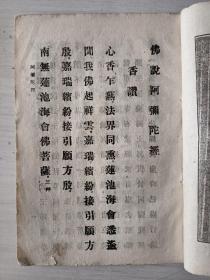 佛說阿彌陀經
香讚
心香乍爇法界同熏蓮池海會悉遙
聞我佛起祥雲嘉瑞繽紛接引願方
殷嘉瑞繽紛接引願方殷
南無蓮池海會佛菩薩三稱